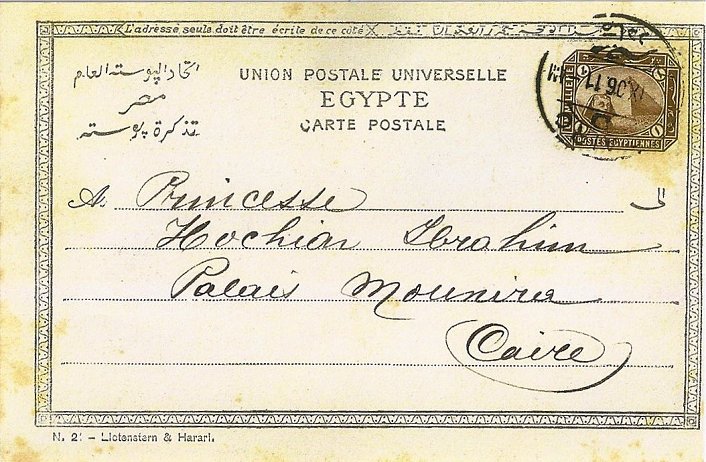 L'adresse seule doit être écrite de ce côté
UNION POSTALE UNIVERSELLE
EGYPTE
CARTE POSTALE
اتحاد البوسته العام
مصر
تذكرة بوسته
POSTES EGYPTIENNES
A Princesse
Hochiar Ibrahim
Palais Mounira
Caire
الى
N. 21 – Lichtenstern & Harari.